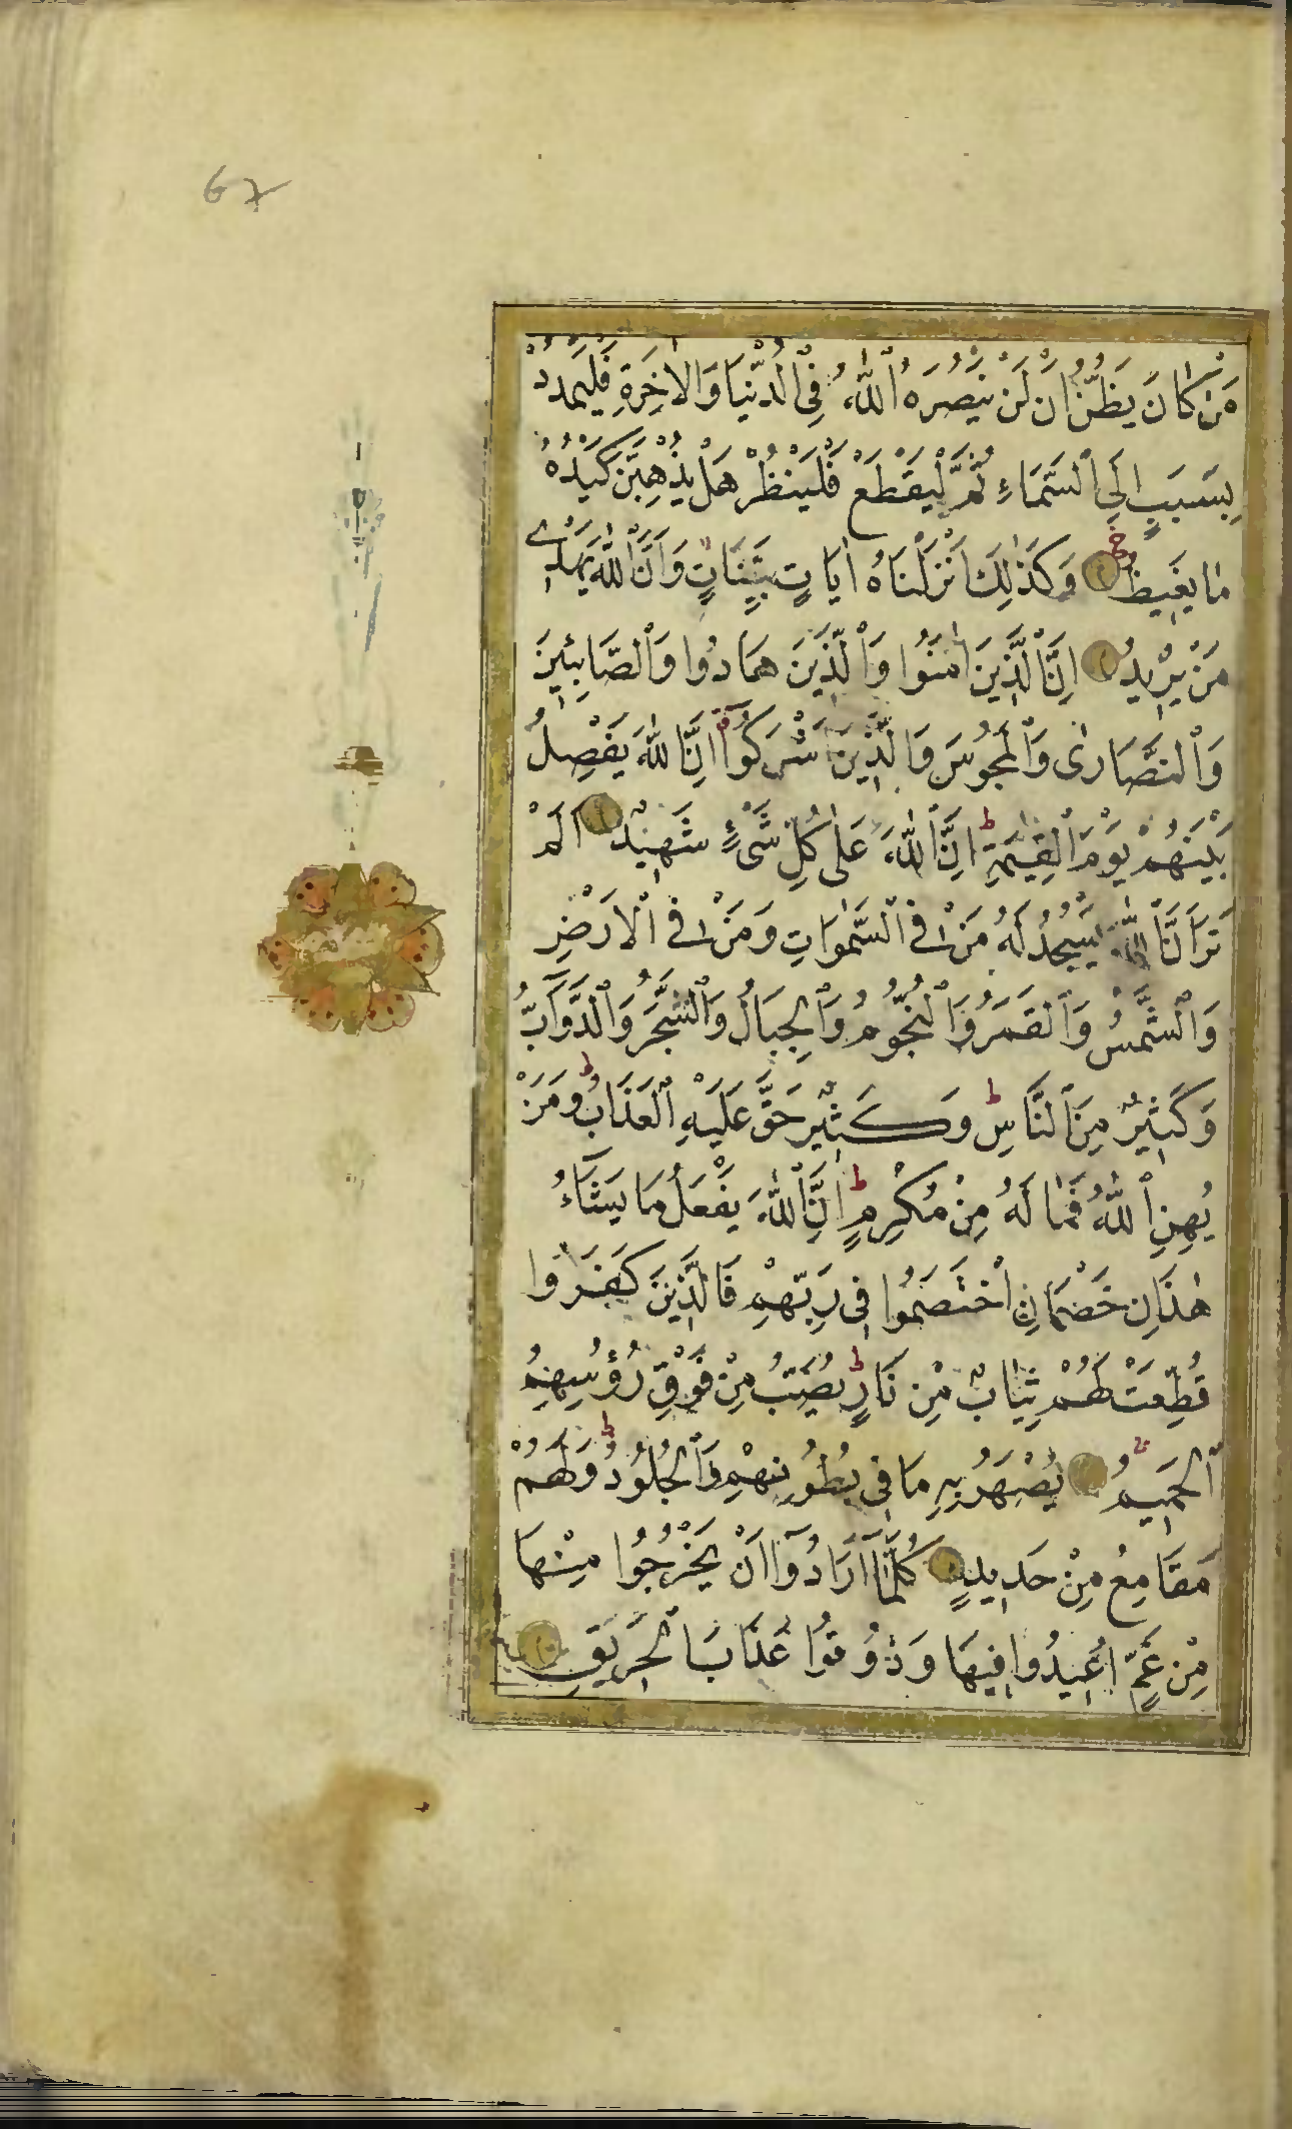 67
مَنْ كَانَ يَظُنُّ اَنْ لَنْ يَنْصُرَهُ ٱللّٰهُ فِى ٱلدُّنْيَا وَالْاٰخِرَةِ فَلْيَمْدُدْ
بِسَبَبٍ اِلَى ٱلسَّمَاءِ ثُمَّ لْيَقْطَعْ فَلْيَنْظُرْ هَلْ يُذْهِبَنَّ كَيْدُهُ
مَا يَغِيظُ وَكَذٰلِكَ اَنْزَلْنَاهُ اٰيَاتٍ بَيِّنَاتٍ وَاَنَّ ٱللّٰهَ يَهْدِى
مَنْ يُرِيدُ اِنَّ ٱلَّذِينَ اٰمَنُوا وَٱلَّذِينَ هَادُوا وَٱلصَّابِئِينَ
وَٱلنَّصَارٰى وَٱلْمَجُوسَ وَالَّذِينَ اَشْرَكُوٓا اِنَّ ٱللّٰهَ يَفْصِلُ
بَيْنَهُمْ يَوْمَ ٱلْقِيٰمَةِ ط اِنَّ ٱللّٰهَ عَلٰى كُلِّ شَىْءٍ شَهِيدٌ اَلَمْ
تَرَ اَنَّ ٱللّٰهَ يَسْجُدُ لَهُ مَنْ فِى ٱلسَّمٰوَاتِ وَمَنْ فِى ٱلْاَرْضِ
وَٱلشَّمْسُ وَٱلْقَمَرُ وَٱلنُّجُومُ وَٱلْجِبَالُ وَٱلشَّجَرُ وَٱلدَّوَآبُّ
وَكَثِيرٌ مِنَ ٱلنَّاسِ ط وَكَثِيرٌ حَقَّ عَلَيْهِ ٱلْعَذَابُ ط وَمَنْ
يُهِنِ ٱللّٰهُ فَمَا لَهُ مِنْ مُكْرِمٍ ط اِنَّ ٱللّٰهَ يَفْعَلُ مَا يَشَآءُ
هٰذَانِ خَصْمَانِ ٱخْتَصَمُوا فِى رَبِّهِمْ فَالَّذِينَ كَفَرُوا
قُطِّعَتْ لَهُمْ ثِيَابٌ مِنْ نَارٍ ط يُصَبُّ مِنْ فَوْقِ رُؤُسِهِمُ
ٱلْحَمِيمُ يُصْهَرُ بِهِ مَا فِى بُطُونِهِمْ وَٱلْجُلُودُ ط وَلَهُمْ
مَقَامِعُ مِنْ حَدِيدٍ كُلَّمَآ اَرَادُوٓا اَنْ يَخْرُجُوا مِنْهَا
مِنْ غَمٍّ اُعِيدُوا فِيهَا وَذُوقُوا عَذَابَ ٱلْحَرِيقِ